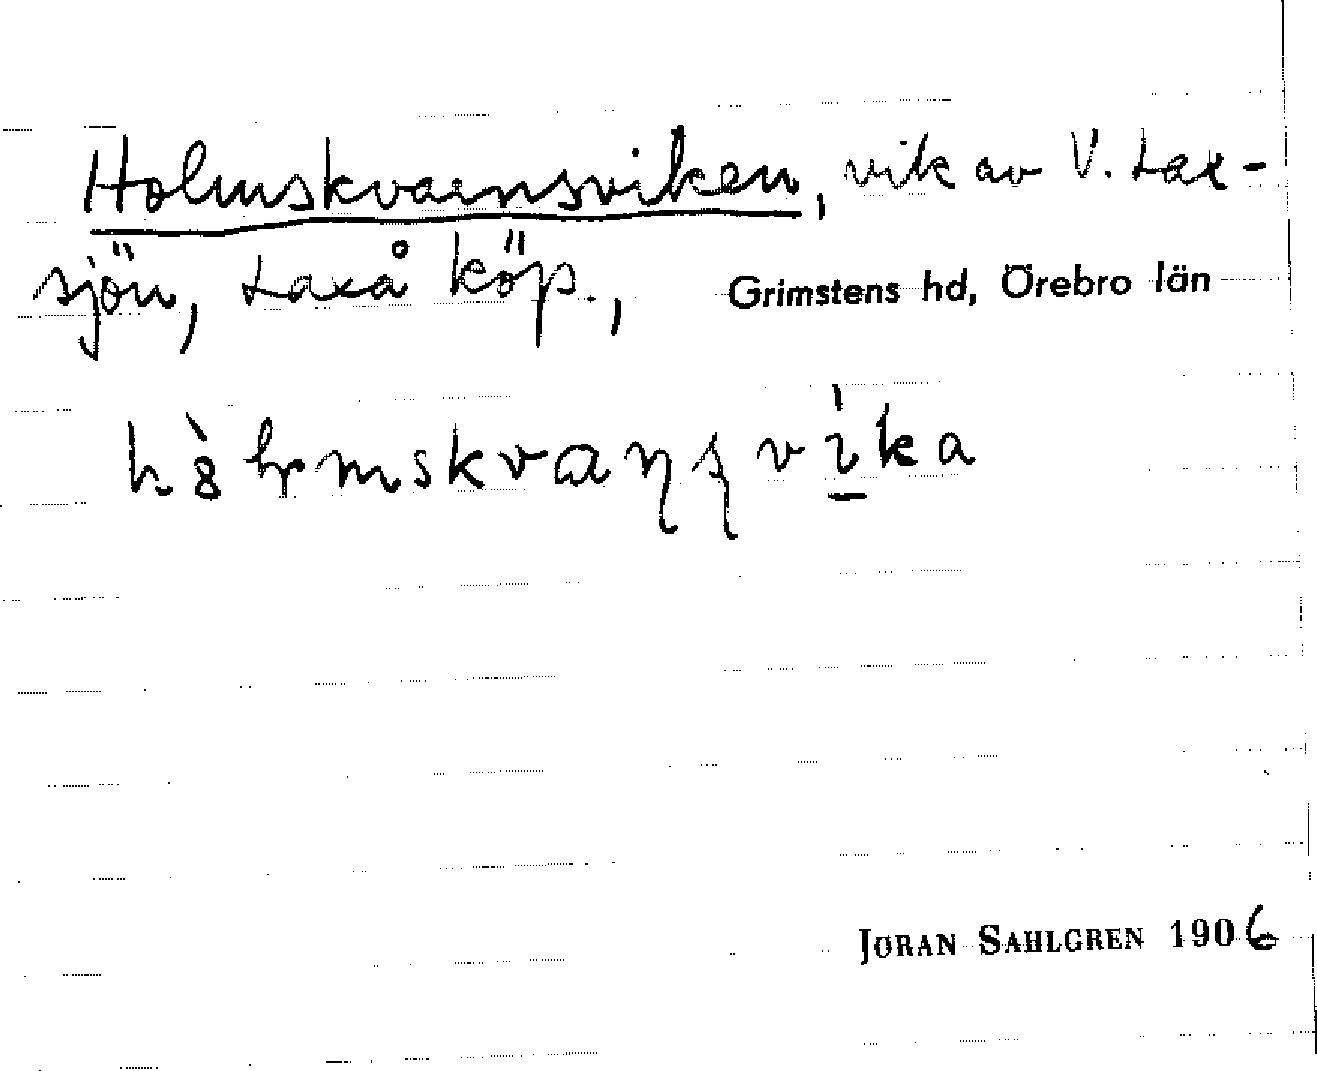 Holmskvarnsviken, vik av V. Lax-
sjön, Laxå köp., Grimstens hd, Örebro län
JÖRAN SAHLGREN 1906